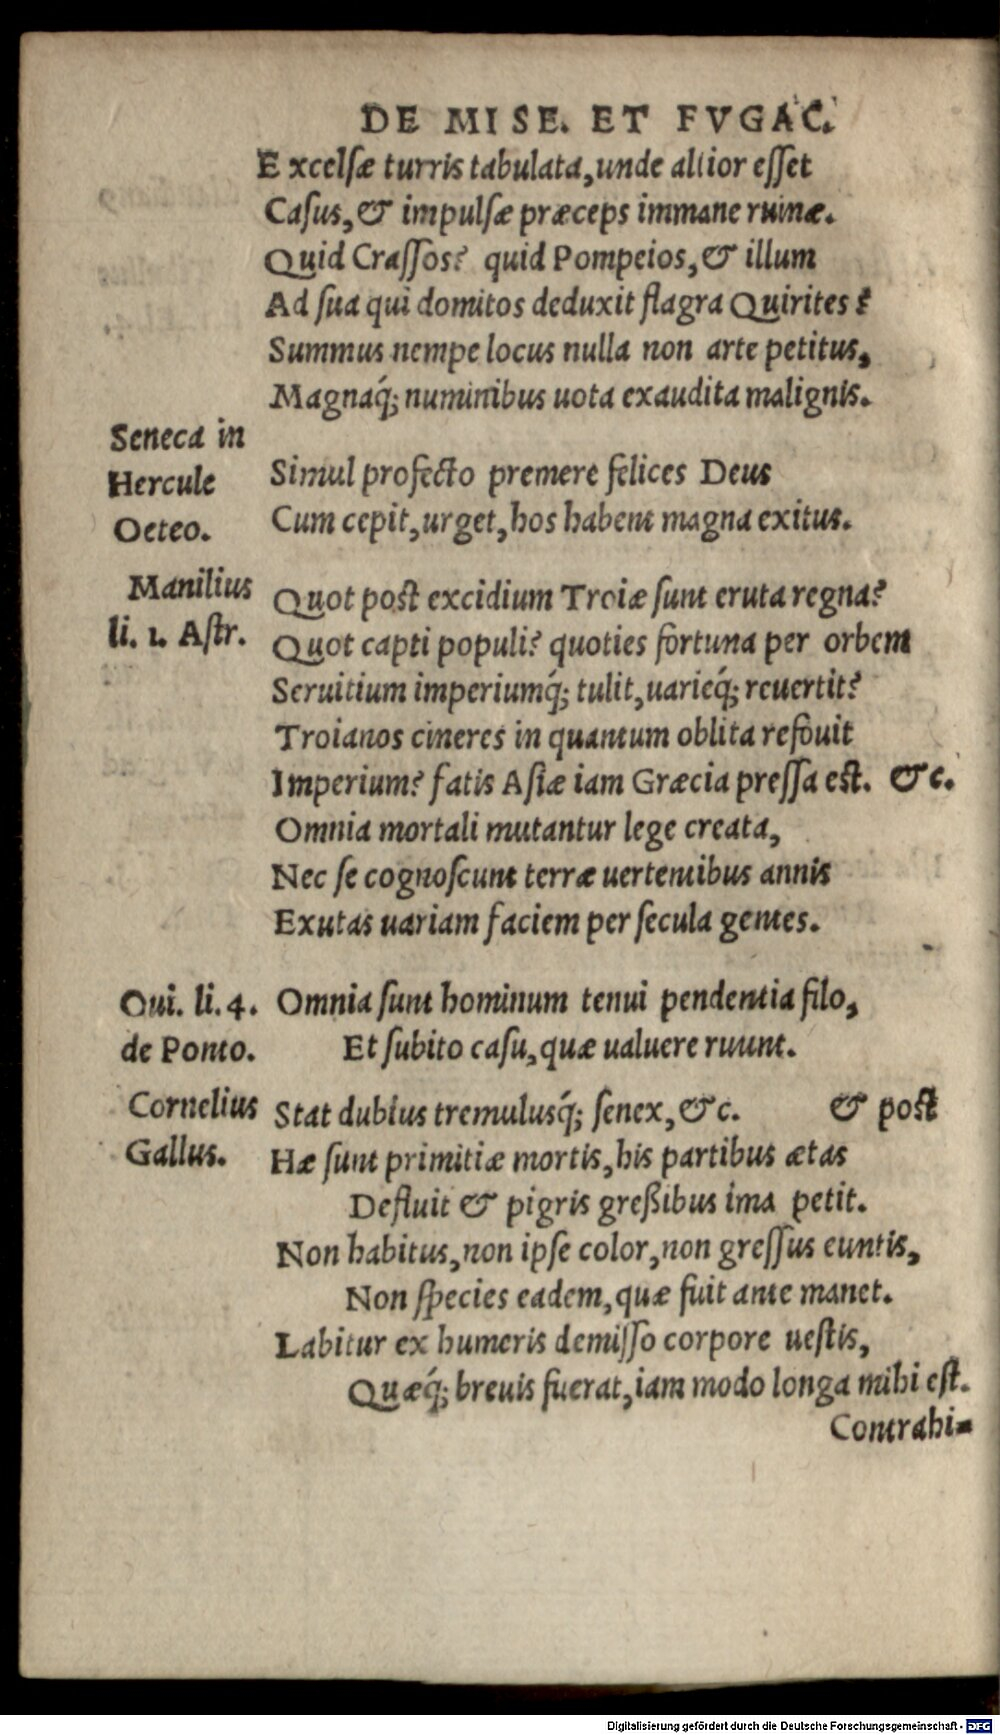 DE MISE. ET FVGAC.
Excelsæ turris tabulata, unde altior esset
Casus, & impulsæ præceps immane ruinæ.
Quid Crassos? quid Pompeios, & illum
Ad sua qui domitos deduxit flagra Quirites?
Summus nempe locus nulla non arte petitus,
Magnaq́; numinibus uota exaudita malignis.
Seneca in
Hercule
Oeteo.
Simul profecto premere felices Deus
Cum cepit, urget, hos habent magna exitus.
Manilius
li. 1. Astr.
Quot post excidium Troiæ sunt eruta regna?
Quot capti populi? quoties fortuna per orbem
Seruitium imperiumq́; tulit, uarieq́; reuertit?
Troianos cineres in quantum oblita refouit
Imperium? fatis Asiæ iam Græcia pressa est. &c.
Omnia mortali mutantur lege creata,
Nec se cognoscunt terræ uertentibus annis
Exutas uariam faciem per secula gentes.
Oui. li. 4.
de Ponto.
Omnia sunt hominum tenui pendentia filo,
Et subito casu, quæ ualuere ruunt.
Cornelius
Gallus.
Stat dubius tremulusq́; senex, &c. & post
Hæ sunt primitiæ mortis, his partibus ætas
Defluit & pigris greßibus ima petit.
Non habitus, non ipse color, non gressus euntis,
Non species eadem, quæ fuit ante manet.
Labitur ex humeris demisso corpore uestis,
Quæq́; breuis fuerat, iam modo longa mihi est.
Contrahi-
Digitalisierung gefördert durch die Deutsche Forschungsgemeinschaft - DFG